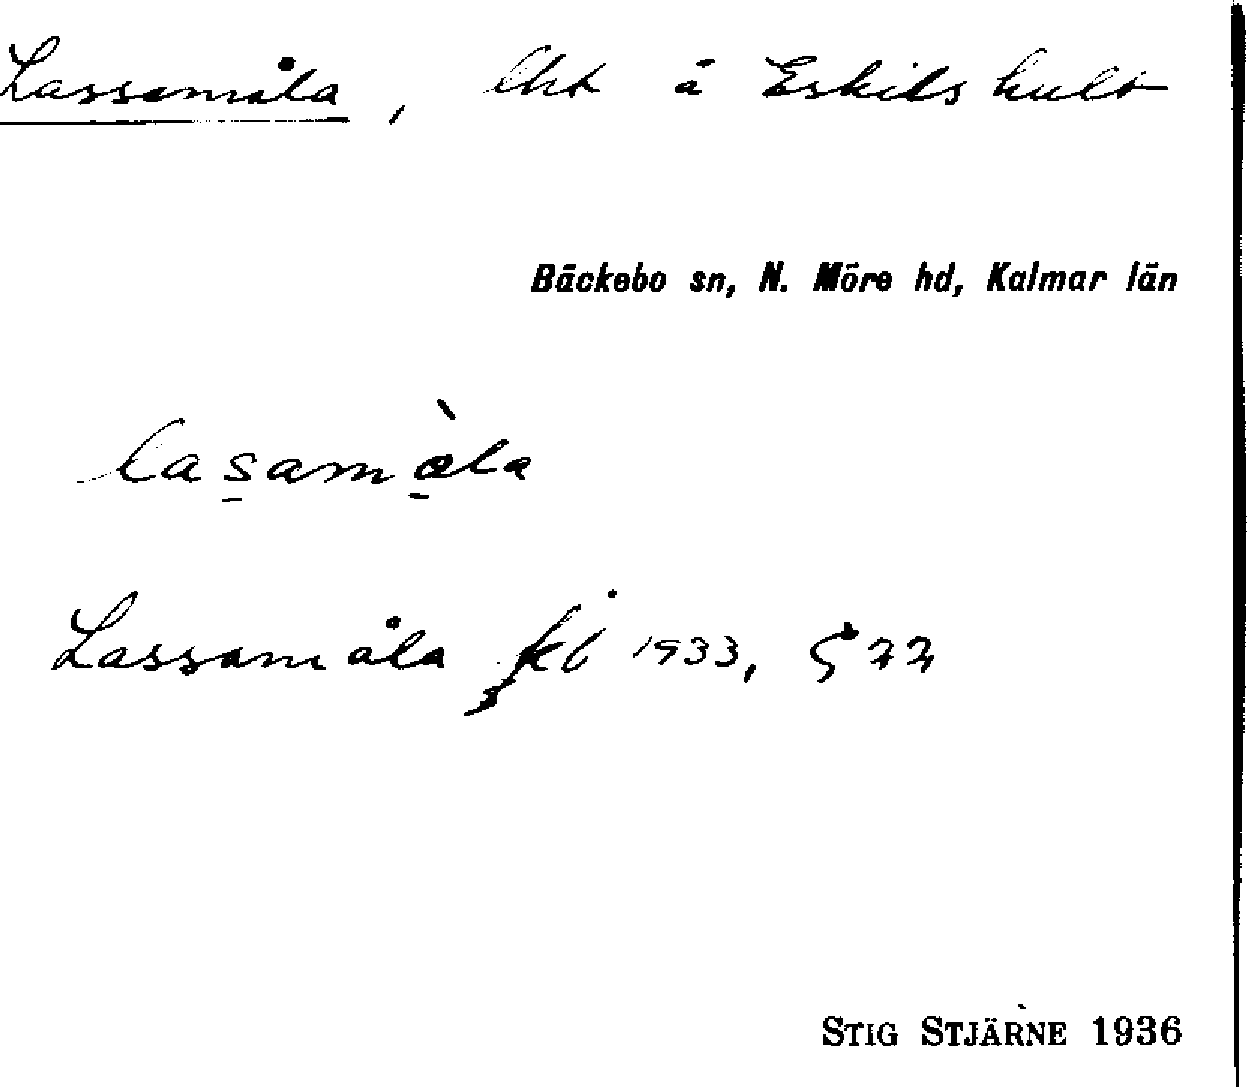 Lassamåla, lht å Eskilshult
Bäckebo sn, N. Möre hd, Kalmar län
las̱amò̱la
Lassamåla fkb 1933, S 22
STIG STJÄRNE 1936